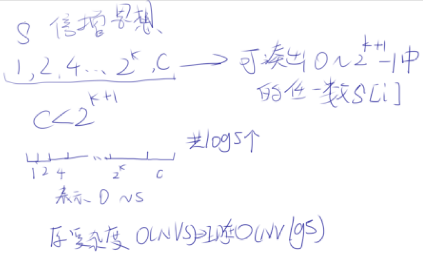 S 倍增思想
1,2,4... 2^k, C → 可凑出0~2^{k+1}-1中
的任一数S[i]
C<2^{k+1}
共logS个
1 2 4 ... 2^k C
表示 0~S
原复杂度 O(NVS)⇒现在O(NVlgS)